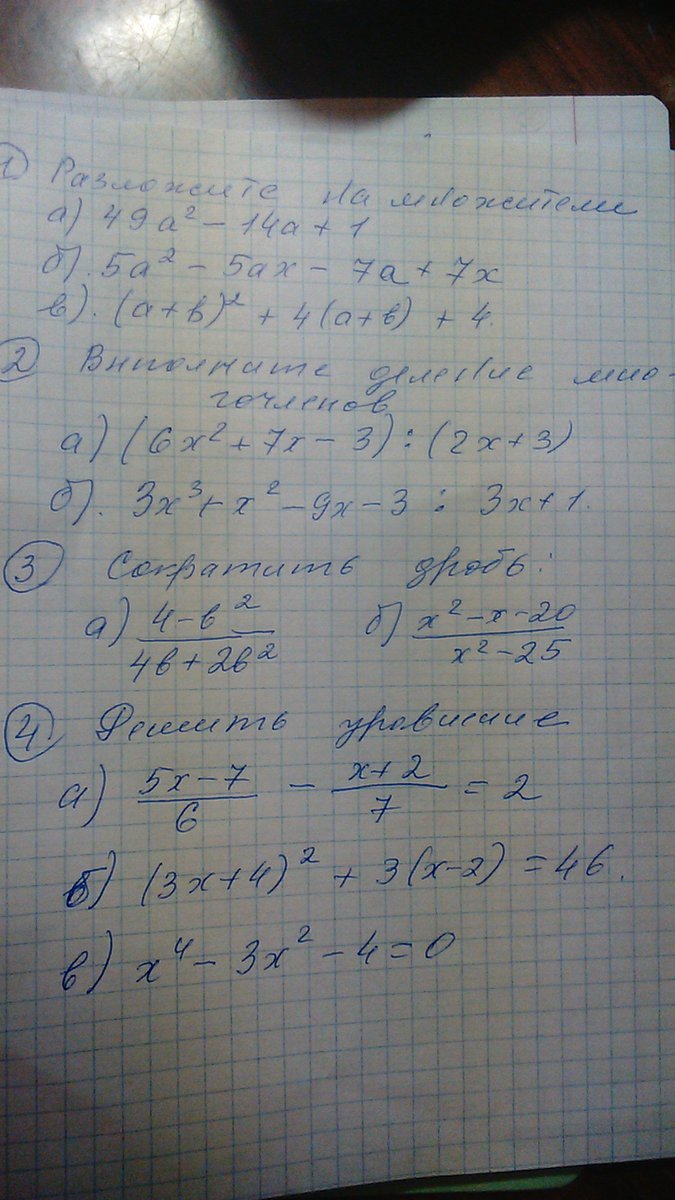 1 Разложите на множители
а) 49a² - 14a + 1
б). 5a² - 5ax - 7a + 7x
в). (a+b)² + 4(a+b) + 4.
2 Выполните деление мно-
гочленов
а) (6x² + 7x - 3) : (2x+3)
б). 3x³ + x² - 9x - 3 : 3x+1.
3 Сократить дробь:
а) (4-b²)/(4b+2b²) б) (x²-x-20)/(x²-25)
4 Решить уровнение
а) (5x-7)/6 - (x+2)/7 = 2
б) (3x+4)² + 3(x-2) = 46.
в) x⁴ - 3x² - 4 = 0